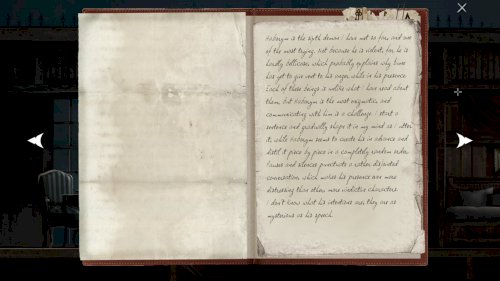 Haborym is the sixth demon I have met so far, and one
of the most trying. Not because he is violent, for he is
hardly bellicose, which gradually explains why time
has yet to give vent to his anger while in his presence.
Each of these beings is unlike what I have read about
them, but Haborym is the most enigmatic, and
communicating with him is a challenge. I start a
sentence and gradually shape it in my mind as I utter
it, while Haborym seems to create his in advance and
distil it piece by piece in a completely random order.
Pauses and silences punctuate a rather disjointed
conversation, which makes his presence even more
distressing than other, more vindictive characters.
I don't know what his intentions are; they are as
mysterious as his speech.